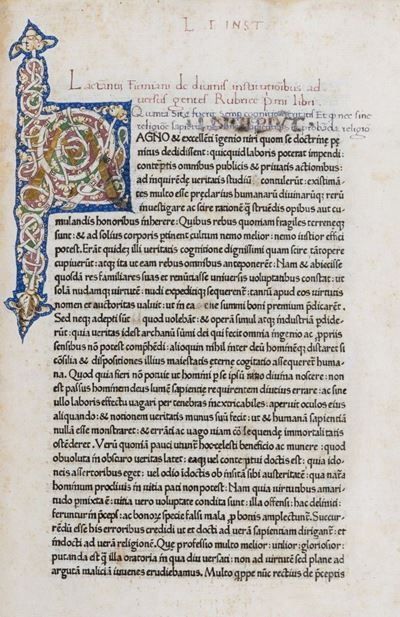 L I INST
Lactantii Firmiani de diuinis institutionibus ad
uersus gentes Rubrice primi libri
Quanta Sit & fuerit Semp cognitio ueritatis Et q nec sine
religiōe sapientia nec sine sapientia sit probāda religio
AGNO & excellēti īgenio uiri quom se doctrinę pe
nitus dedidissent: quicquid laboris poterat impendi:
contēptis omnibus publicis & priuatis actionibus:
ad inquirēdę ueritatis studiū contulerūt: existimā
tes multo esse pręclarius humanarū diuinarūq; rerū
inuestigare ac scire rationē q̄ struēdis opibus aut cu
mulandis honoribus inhęrere: Quibus rebus quoniam fragiles terrenęq;
sunt: & ad solius corporis ptinent cultum nemo melior: nemo iustior effici
potest. Erāt quidē illi ueritatis cognitione dignissimi quam scire tātopere
cupiuerūt: atq; ita ut eam rebus omnibus anteponerēt: Nam & abiecisse
quosdā res familiares suas et renūtiasse uniuersis uoluptatibus constat: ut
solā nudamq; uirtutē: nudi expeditiq; sequerent: tantū apud eos uirtutis
nomen et auctoritas ualuit: ut in ea summi boni premium pdicarēt.
Sed neq; adepti sūt quod uolebāt: & operā simul atq; industriā pdide-
rūt: quia ueritas idest archanū sūmi dei qui fecit omnia ingenio ac ppriis
sensibus nō potest comphēdi: alioquin nihil inter deū hominēq; distaret si
cōsilia & dispositiones illius maiestatis eternę cogitatio assequeret huma-
na. Quod quia fieri nō potuit ut homini p se ipsū ratio diuina notesceret: non
est passus hominem deus lumē sapientię requirentem diutius errare: ac sine
ullo laboris effectu uagari per tenebras inextricabiles: aperuit oculos eius
aliquando: & notionem ueritatis munus suū fecit: ut & humanā sapientiā
nullā esse monstraret: & errāti ac uago uiam cōsequendę immortalitatis
ostēderet. Verū quoniā pauci utunt hoc cęlesti beneficio ac munere: quod
obuoluta in obscuro ueritas latet: eaq; uel contemptui doctis est: quia ido-
neis assertoribus eget: uel odio idoctis ob insitā sibi austeritatē: quā natā
hominum procliuis in uitia pati non potest: Nam quia uirtutibus amari-
tudo pmixta ē: uitia uero uoluptate condita sunt: illa offensi: hac deliniti:
feruntur in pceps: ac bonoȝ specie falsi mala p bonis amplectunt. Succur-
rēdū esse his erroribus credidi ut et docti ad uerā sapientiam dirigant: et
indocti ad uerā religionē. Quę professio multo melior: utilior: gloriosior:
putanda est q̄ illa oratoria in qua diu uersati: non ad uirtutē sed plane ad
argutā maliciā iuuenes erudiebamus. Multo qppe nūc rectius de pceptis